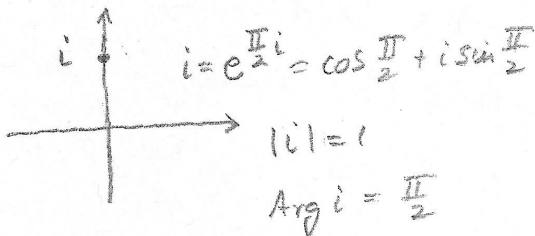 i
i = e^{π/2 i} = cos π/2 + i sin π/2
|i| = 1
Arg i = π/2